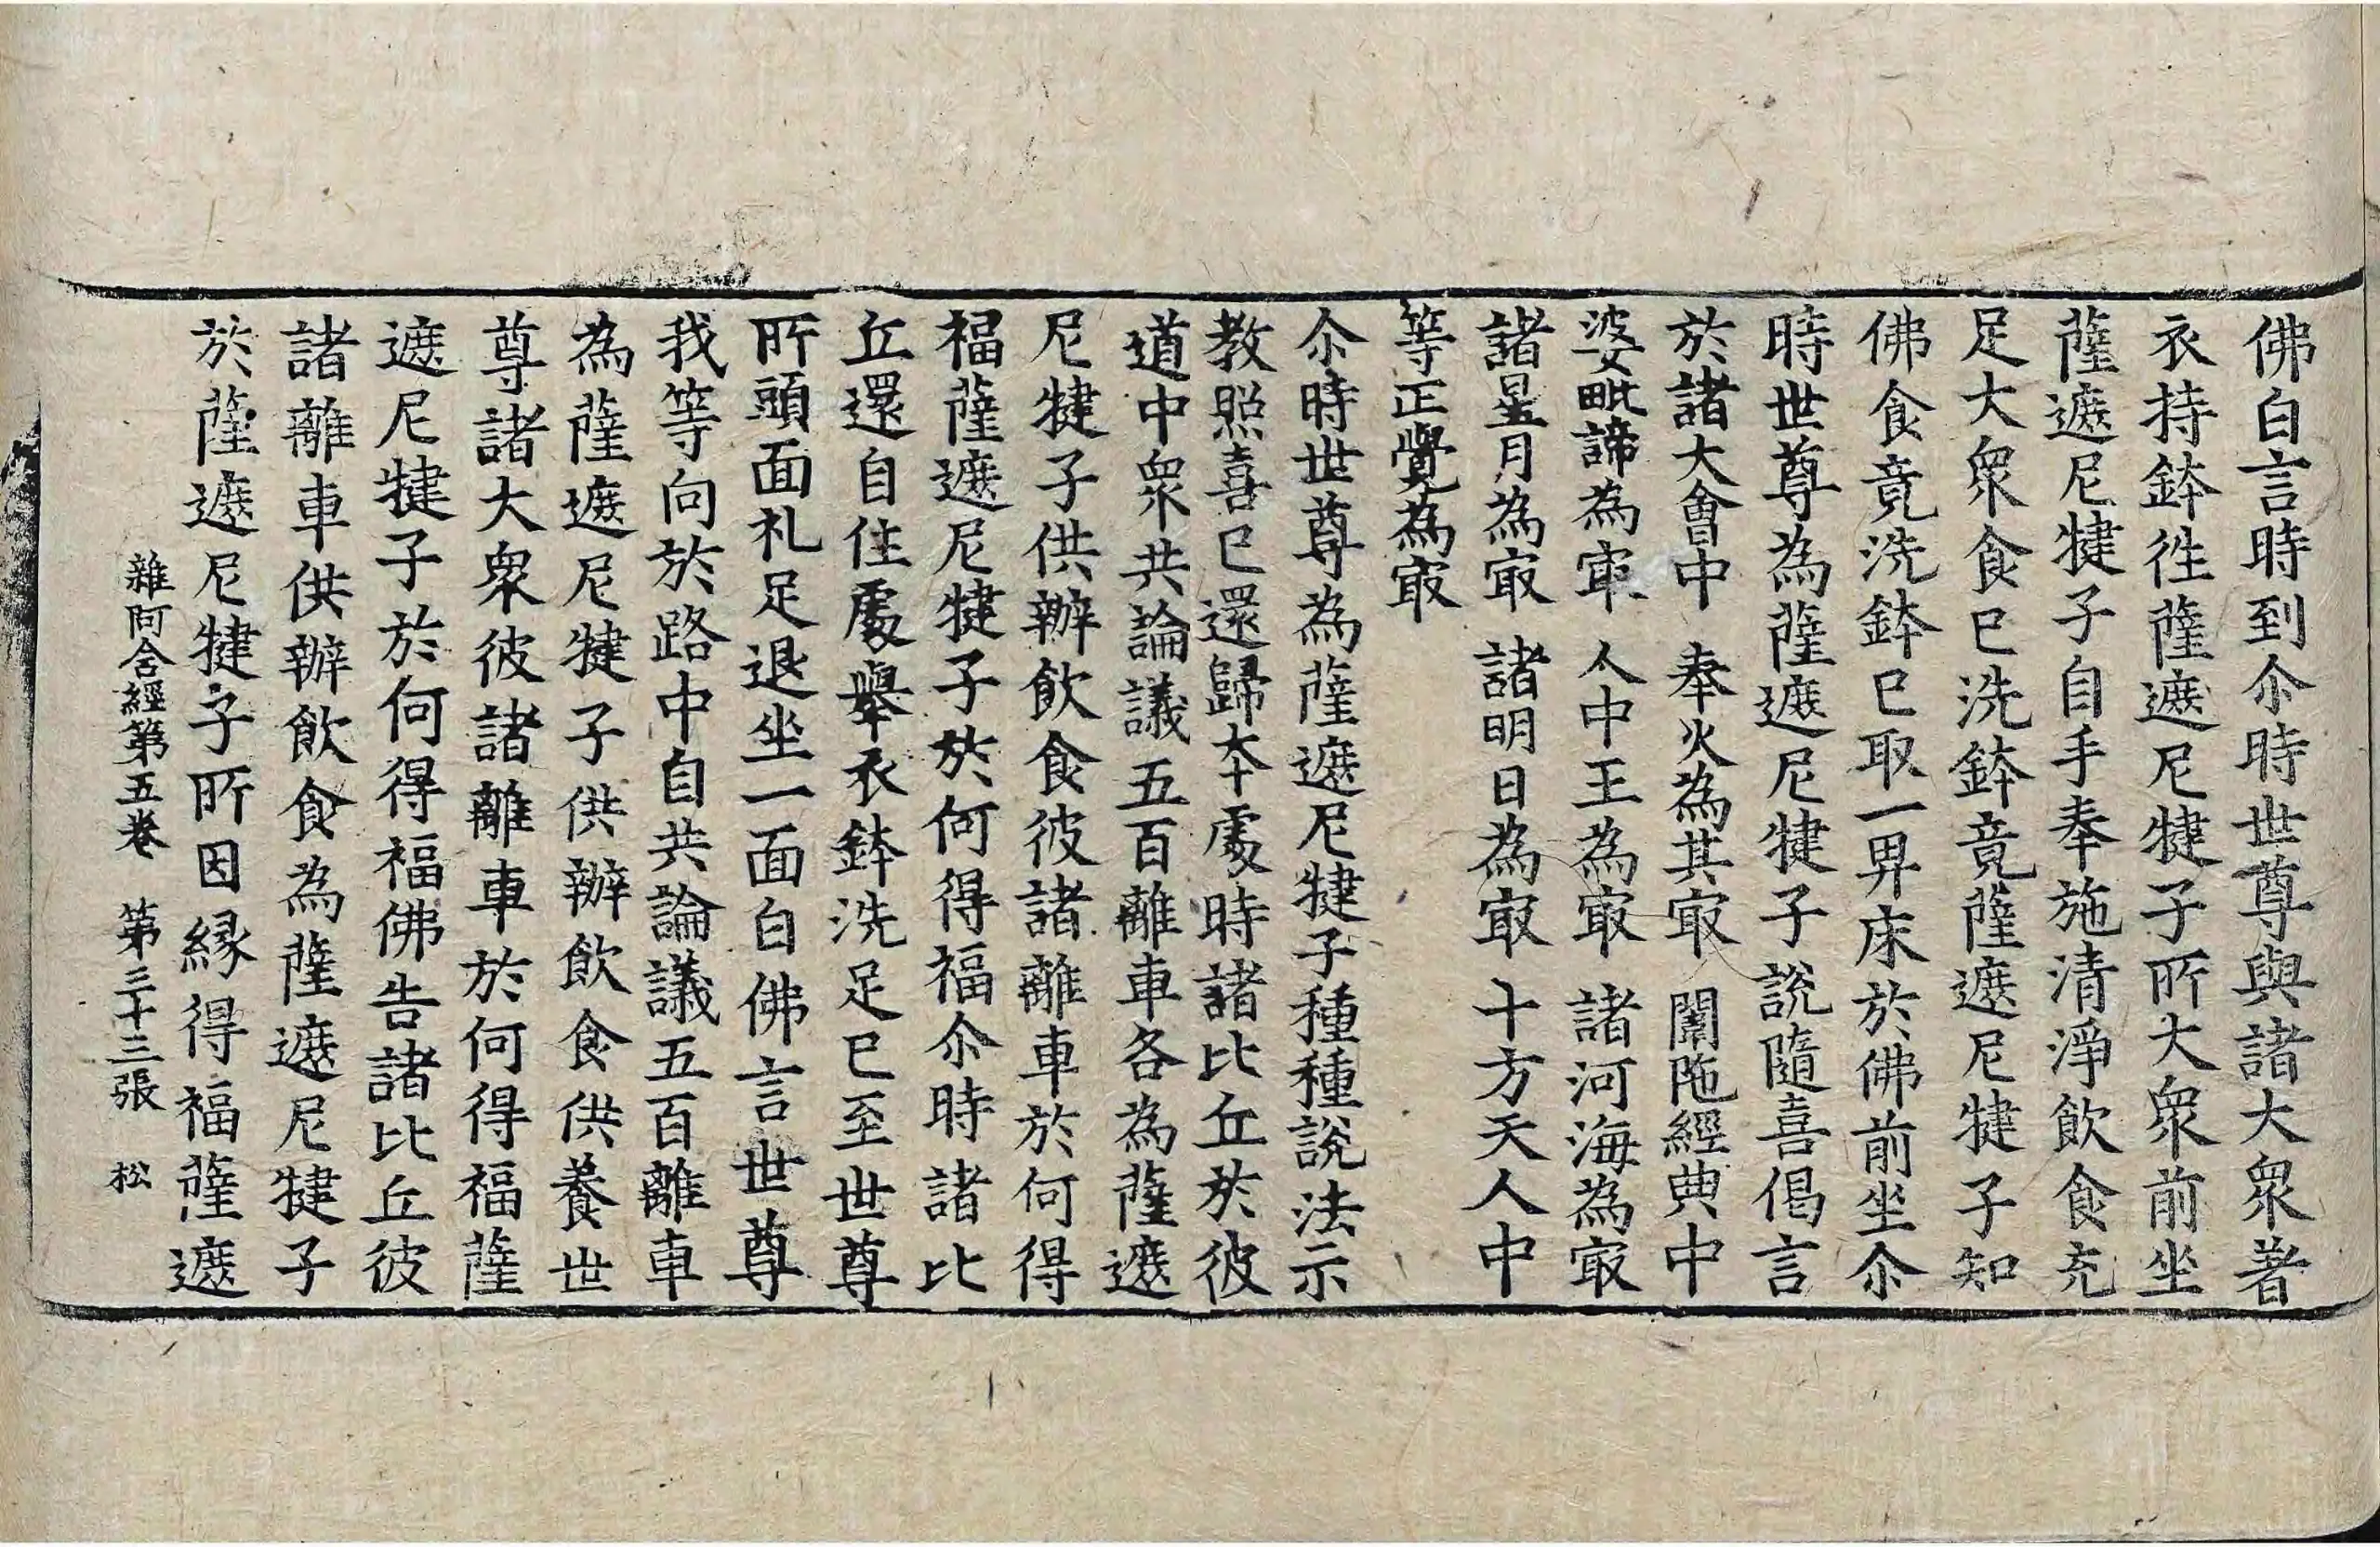 佛白言時到尒時世尊與諸大衆著
衣持鉢徃薩遮尼犍子所大衆前坐
薩遮尼犍子自手奉施清淨飲食充
足大衆食已洗鉢竟薩遮尼犍子知
佛食竟洗鉢已取一卑床於佛前坐尒
時世尊為薩遮尼犍子說隨喜偈言
於諸大會中　奉火為其㝡　闈陁經典中
婆毗諦為㝡　人中王為㝡　諸河海為㝡
諸星月為㝡　諸明日為㝡　十方天人中
等正覺為㝡
尒時世尊為薩遮尼犍子種種說法示
教照喜已還歸本處時諸比丘於彼
道中衆共論議五百離車各為薩遮
尼犍子供辦飲食彼諸離車於何得
福薩遮尼犍子於何得福尒時諸比
丘還自住處舉衣鉢洗足已至世尊
所頭面礼足退坐一面白佛言世尊
我等向於路中自共論議五百離車
為薩遮尼犍子供辦飲食供養世
尊諸大衆彼諸離車於何得福薩
遮尼犍子於何得福佛告諸比丘彼
諸離車供辦飲食為薩遮尼犍子
於薩遮尼犍子所因緣得福薩遮
雜阿含經第五卷　第三十三張　松